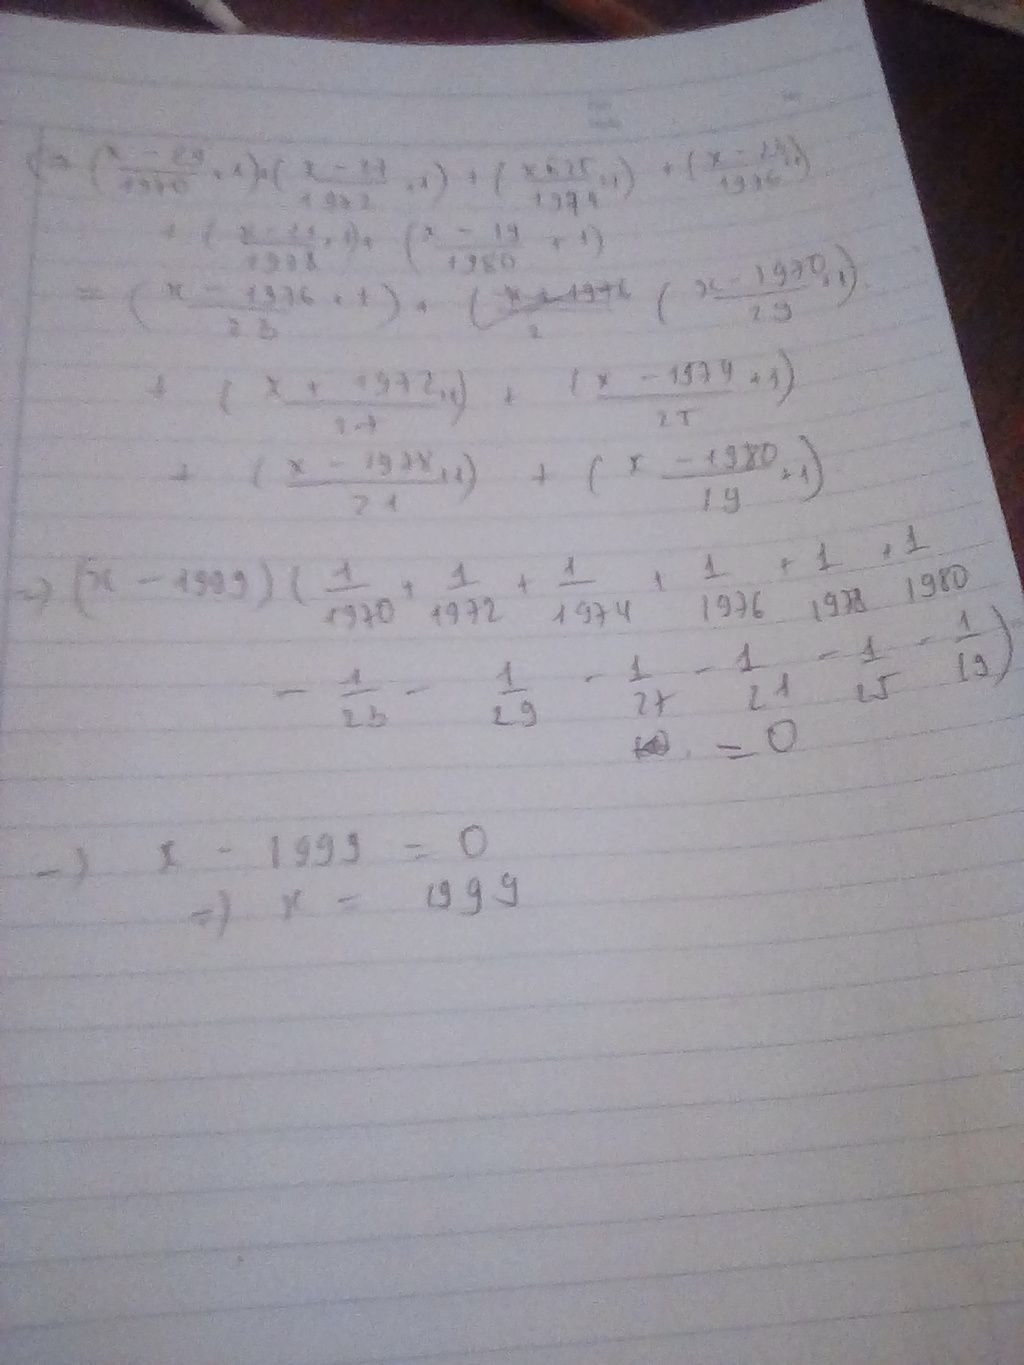 (=> (x - 29/1970 + 1) + (x - 27/1972 + 1) + (x - 25/1974 + 1) + (x - 23/1976 + 1)
+ (x - 21/1978 + 1) + (x - 19/1980 + 1)
= (x - 1976/23 + 1) + (x - 1970/29 + 1)
+ (x + 1972/27 + 1) + (x - 1974/25 + 1)
+ (x - 1978/21 + 1) + (x - 1980/19 + 1)
=> (x - 1999) (1/1970 + 1/1972 + 1/1974 + 1/1976 + 1/1978 + 1/1980
- 1/23 - 1/29 - 1/27 - 1/21 - 1/25 - 1/19)
= 0
=> x - 1999 = 0
=> x = 1999